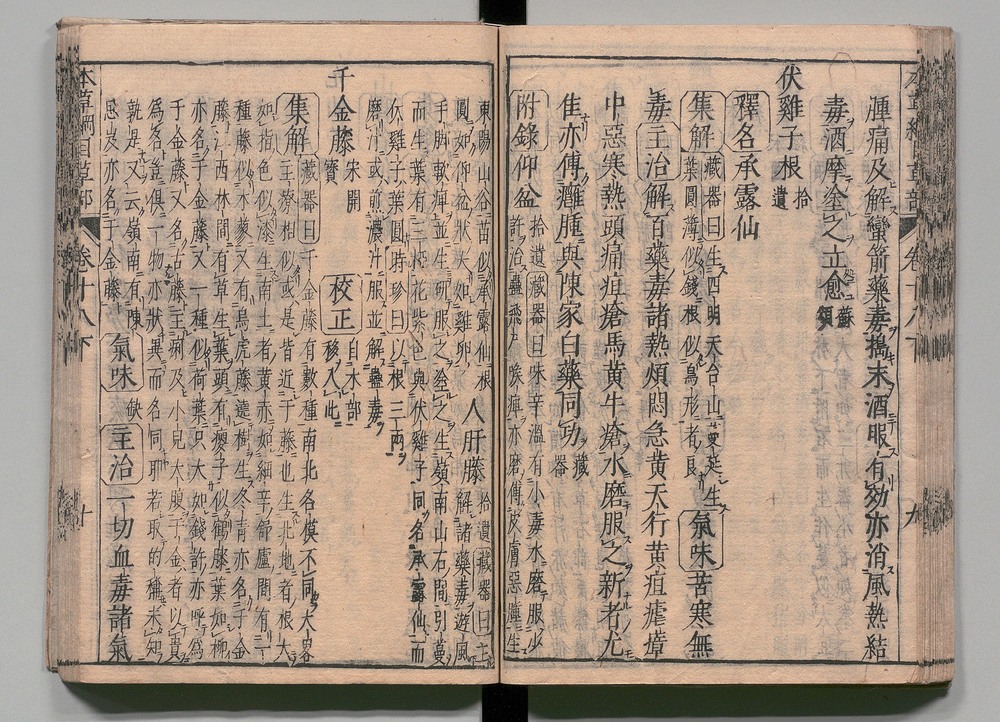 腫痛及解蠻箭藥毒擣末酒服有効亦消風熱結
毒酒摩塗之立愈蘇頌
伏雞子根拾遺
釋名承露仙
集解藏器曰生四明天台山蔓延生
葉圓薄似錢根似鳥形者良氣味苦寒無
毒主治解百藥毒諸熱煩悶急黄天行黄疸瘧瘴
中惡寒熱頭痛疽瘡馬黄牛瘡水磨服之新者尤
佳亦傅癰腫與陳家白藥同功藏器
附錄仰盆拾遺藏器曰味辛溫有小毒水磨服少
許治蠱飛尸喉痺亦磨傅皮膚惡腫生
東陽山谷苗似承露仙根
圓如仰盆狀大如雞卵人肝藤拾遺藏器曰主
解諸藥毒遊風
手脚軟痺並生研服之塗之生嶺南山石間引蔓
而生葉有三椏花紫色與伏雞子同名承露仙而
伏雞子葉圓時珍曰以根三兩
磨汁或煎濃汁服並解蠱毒
千金藤宋開寶校正自木部移入此
集解藏器曰千金藤有數種南北名模不同大畧
主療相似或是皆近于藤也生北地者根大
如指色似漆生南土者黄赤如細辛舒廬間有一
種藤似木蓼又有烏虎藤遶樹生冬青亦名千金
藤江西林間有草生葉頭有癭子似鶴膝葉如柳
亦名千金藤又一種似荷葉只大如錢許亦呼爲
千金藤又名古藤主痢及小兒大腹千金者以貴
爲名豈俱一物亦狀異而名同耶若取的稱未知
孰是又云嶺南有陳
思岌亦名千金藤氣味缺主治一切血毒諸氣
本草綱目草部 卷十八下 九
本草綱目草部 卷十八下 十